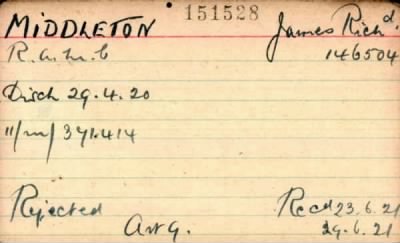 151528
MIDDLETON James Richd.
R.a.m.c 146504
Disch 29.4.20
11/m/371414
Rejected Recd 23.6.21
Art 9. 29.6.21